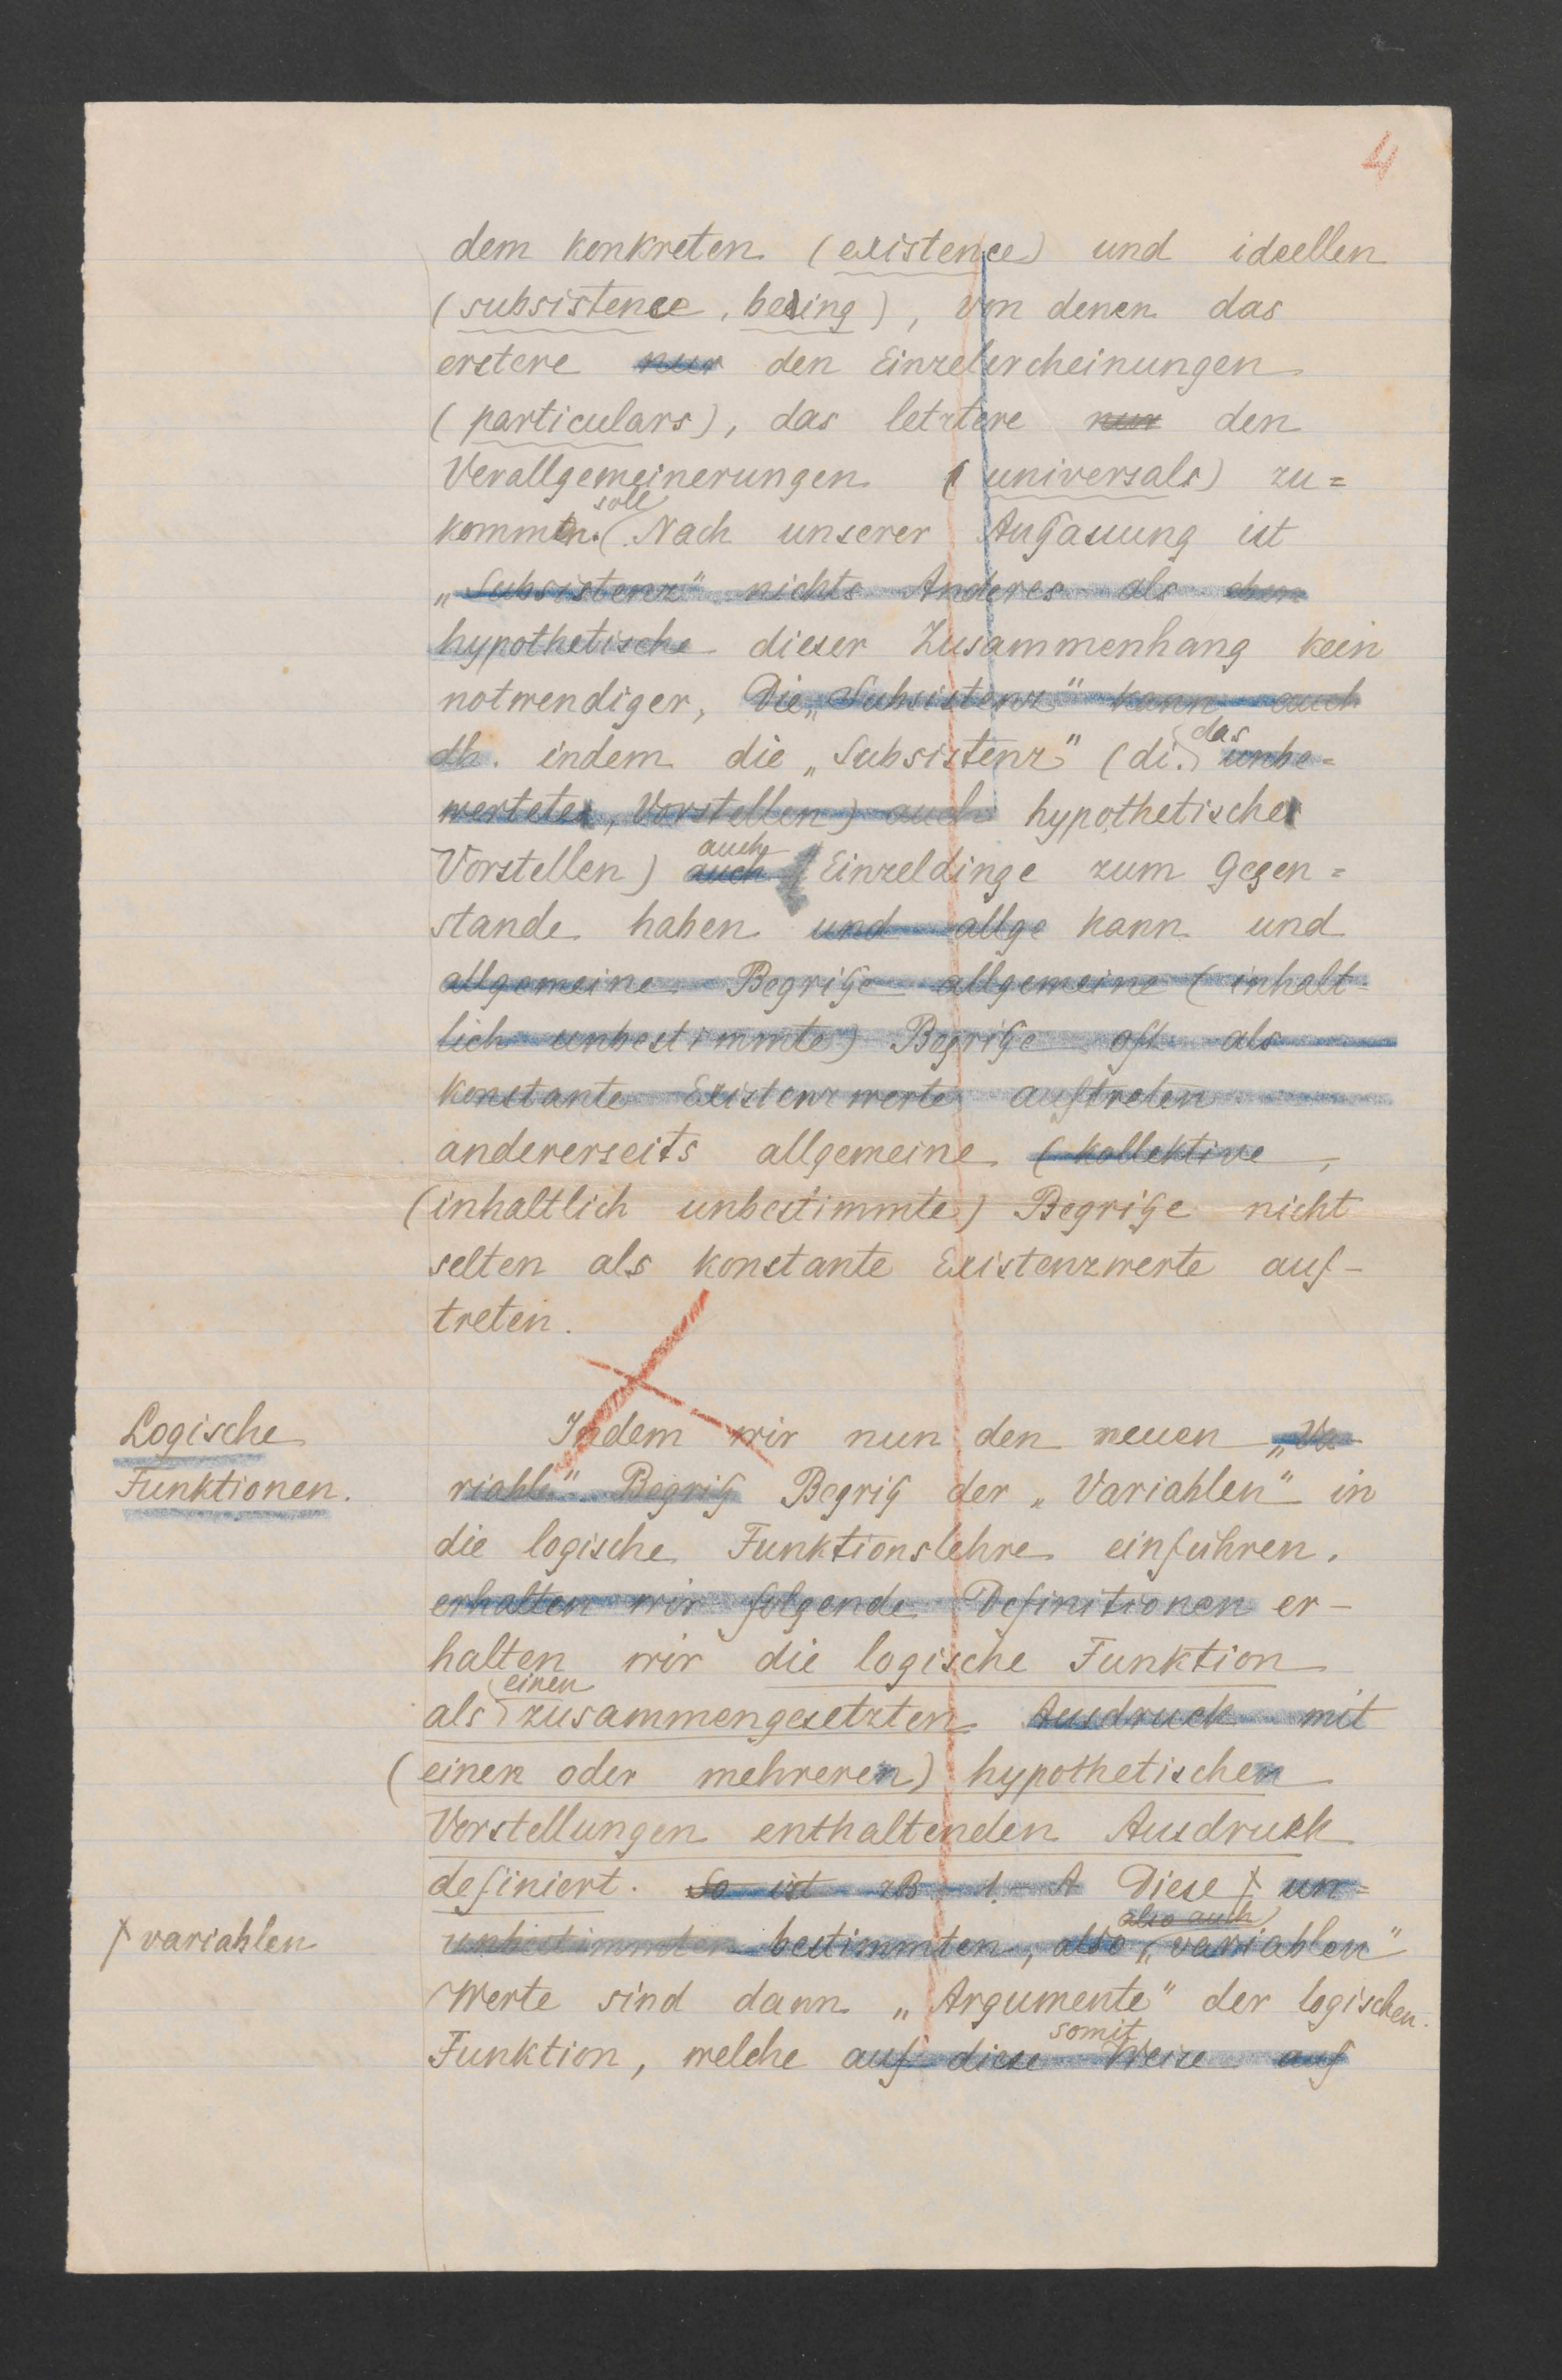 4
dem konkreten (existence) und ideellen
(subsistence, being), von denen das
erstere nur den Einzelercheinungen
(particulars), das letztere nur den
Verallgemeinerungen (universals) zu=
soll
kommen. Nach unserer Anschauung ist
„Subsistenz" nichts Anderes als eben
hypothetische dieser Zusammenhang kein
notwendiger, Die „Subsistenz" kann auch
das
dh. indem die „Subsistenz" (di. unbe=
wertete, Vorstellen) auch hypothetische
auch
Vorstellen) auch Einzeldinge zum Gegen=
stande haben und allge kann und
allgemeine Begriffe allgemeine (inhalt=
lich unbestimmte) Begriffe oft als
konstante Existenzwerte auftreten
andererseits allgemeine (kollektive,
(inhaltlich unbestimmte) Begriffe nicht
selten als konstante Existenzwerte auf-
treten.
Logische
Funktionen.
Indem wir nun den neuen „Va-
riable" Begriff Begriff der „Variablen" in
die logische Funktionslehre einführen.
erhalten wir folgende Definitionen er-
halten wir die logische Funktion
einen
als zusammengesetzten Ausdruck mit
(einen oder mehreren) hypothetischen
Vorstellungen enthaltenden Ausdruck
definiert. So ist zB 1. A Diese un=
also auch
variablen
unbestimmten bestimmten, also „variablen"
Werte sind dann „Argumente" der logischen
somit
Funktion, welche auf diese Weise auf